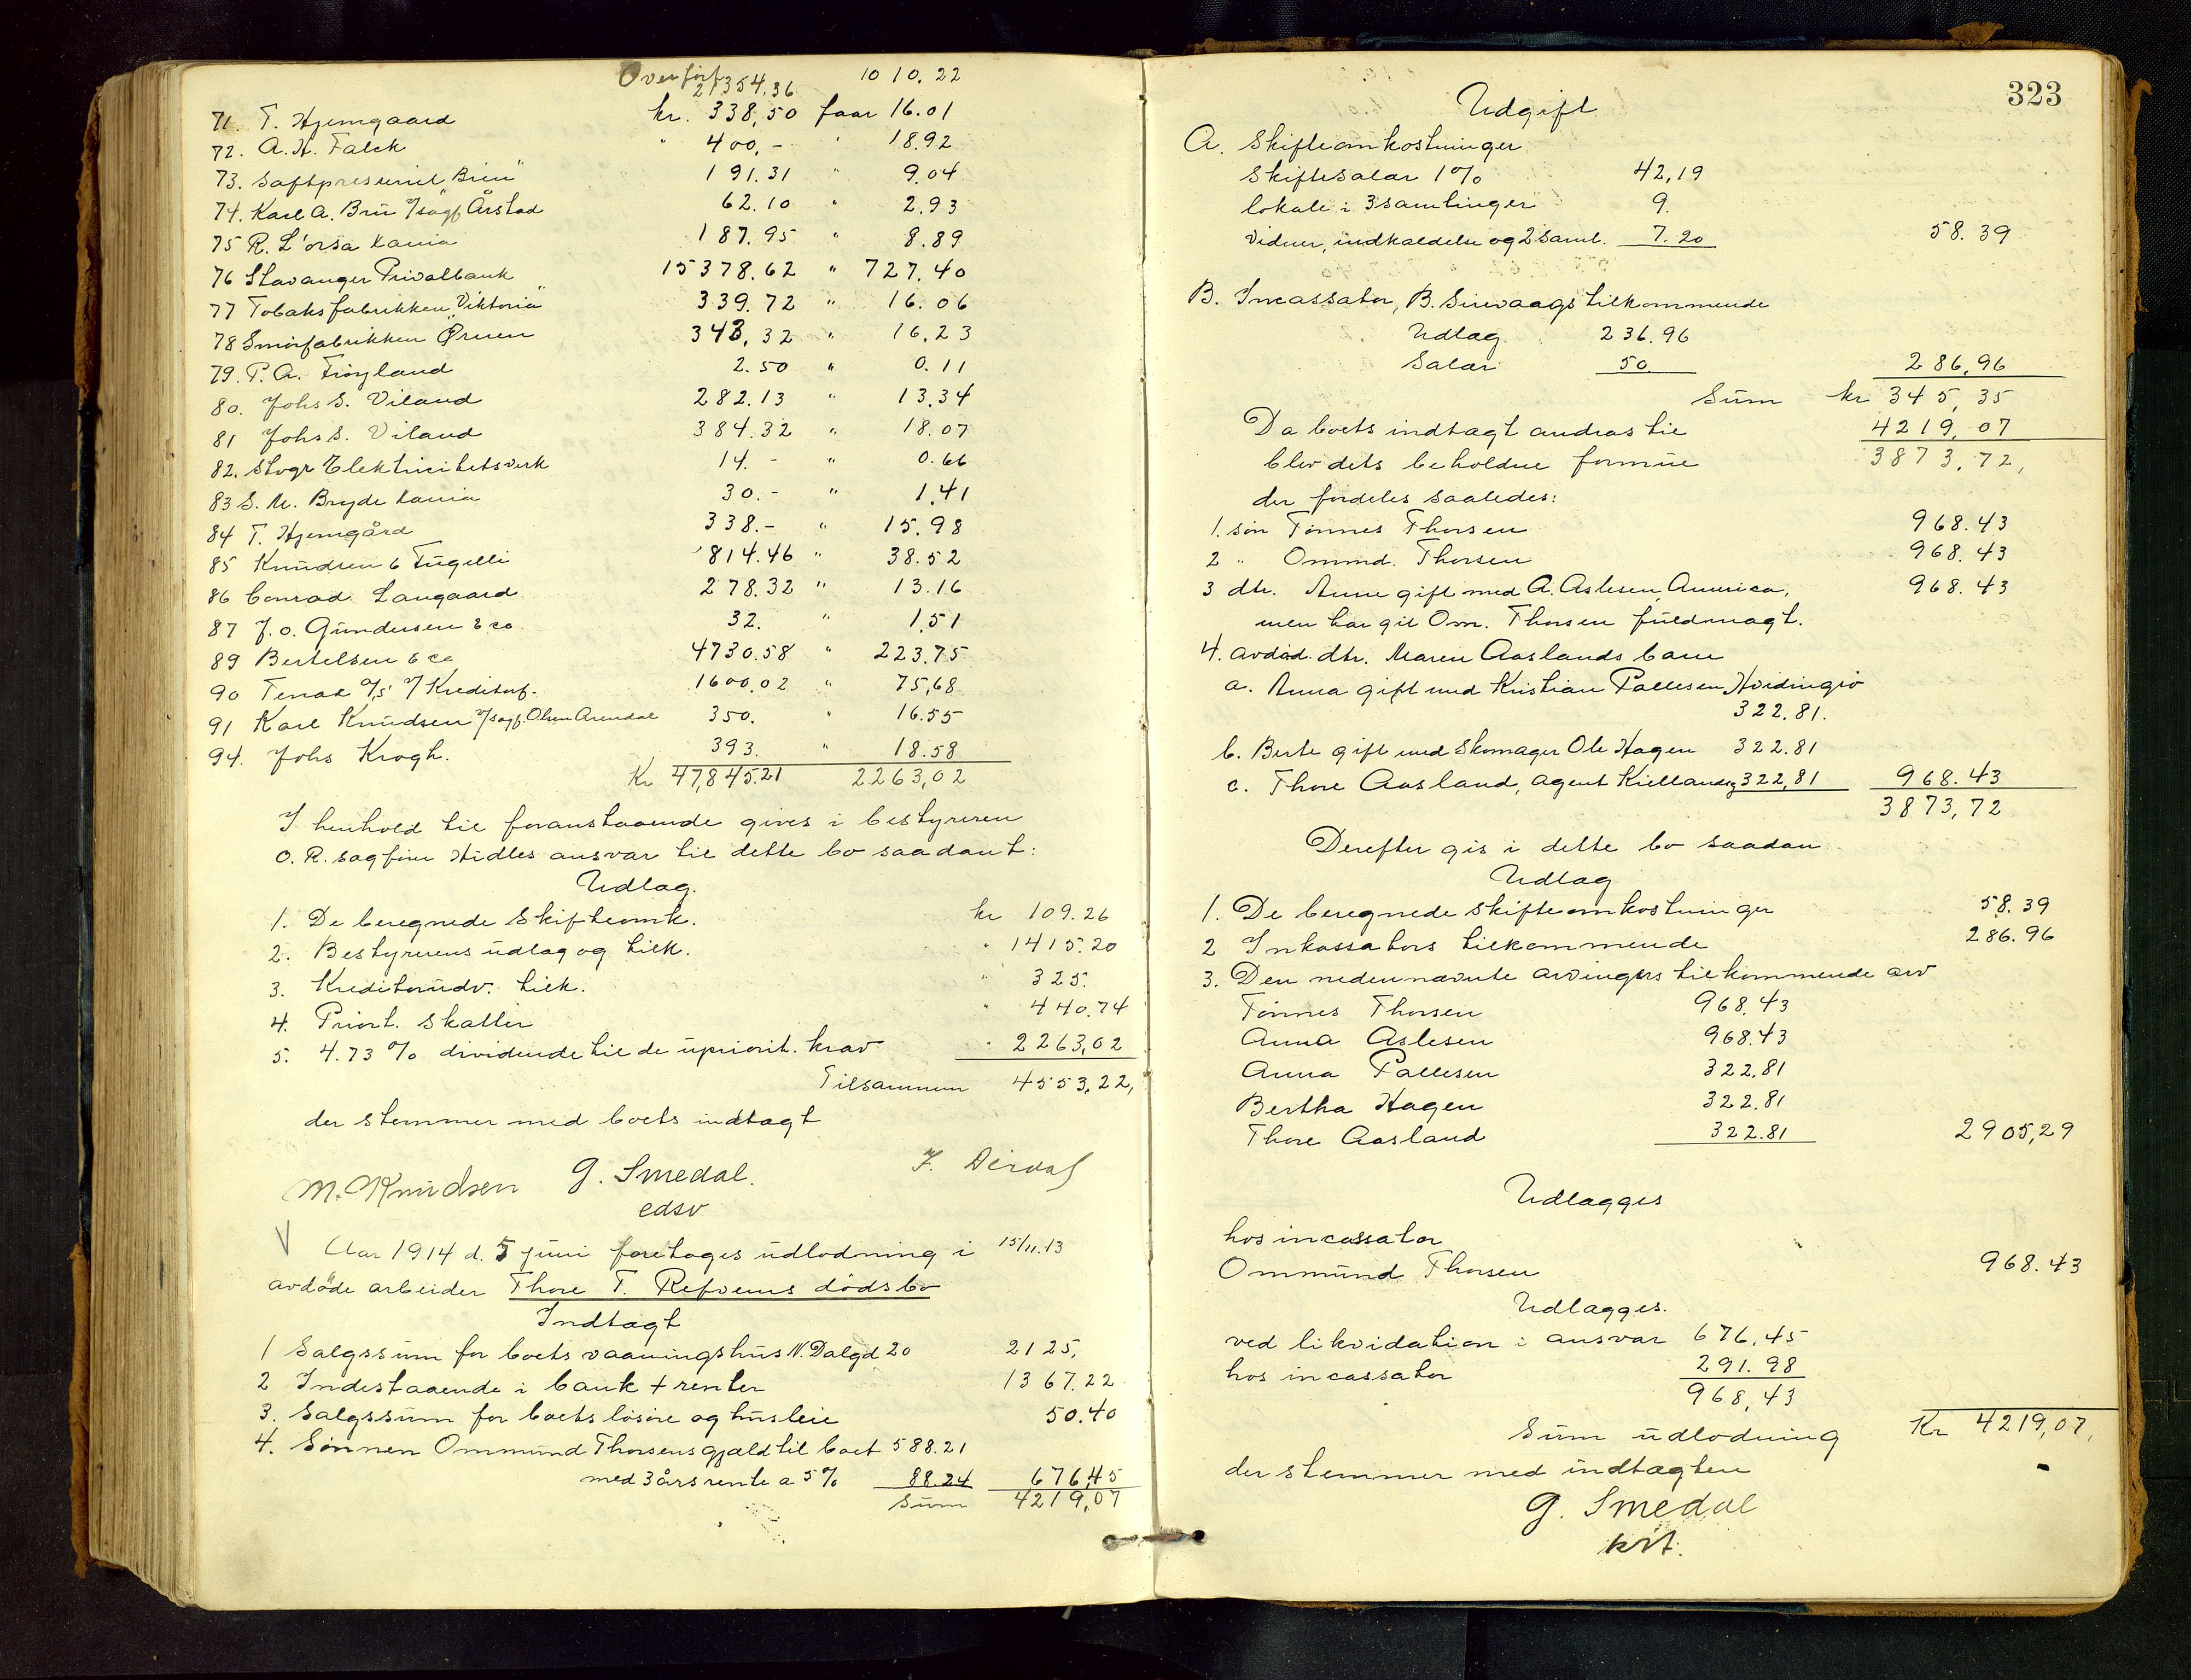 Overført 21354.36 1010.22
71. T. Hjemgaard kr. 338,50 faar 16.01
72. A. H. Falck " 400,- " 18.92
73. Saftpresseriet "Brin" 191.31 " 9.04
74. Karl A. Brü v/sagf Årstad 62.10 " 2.93
75 R. L'orsa Kania 187.95 " 8.89
76 Stavanger Privatbank 15378.62 " 727.40
77 Tobaksfabrikken "Viktoria" 339.72 " 16.06
78 Smørfabrikken Ørnen 343,32 " 16,23
79. P. A. Frøyland 2.50 " 0.11
80. Johs S. Viland 282.13 " 13.34
81 Johs S. Viland 384.32 " 18.07
82. Stvgr Elektricitetsverk 14.- " 0.66
83 S. M. Bryde Kania 30.- " 1.41
84 T. Hjemgård 338.- " 15.98
85 Knudsen & Fugelli 814.46 " 38.52
86 Conrad Langaard 278.32 " 13.16
87 J. O. Gundersen & co 32. " 1.51
89 Bertelsen & co 4730.58 " 223.75
90 Tenax A/S v/ Kreditorf. 1600.02 " 75,68
91 Karl Knudsen v/sagf. Olsen Arendal 350. " 16.55
94. Johs Krogh. 393. " 18.58
Kr 47,845.21 2263,02
I henhold til foranstaaende gives i bestyreren
O. R. sagfører Hidles ansvar til dette bo saadant:
Udlag.
1. De beregnede Skifteomk. kr 109.26
2. Bestyrerens udlag og tilk. " 1415.20
3. Kreditorudv. tilk. " 325.
4. Priort. Skatter " 440.74
5. 4.73 % dividende til de upriorit. krav " 2263,02
Tilsammen 4553,22,
der stemmer med boets indtægt
M. Knudsen G. Smedal. edsv
Aar 1914 d. 5 juni foretoges udlodning i 15/11.13
avdøde arbeider Thore T. Refvems dødsbo
Indtægt
1 Salgssum for boets vaaningshus N. Dalgd 20 2125,
2 Indestaaende i bank + renter 1367.22
3. Salgssum for boets løsøre og husleie 50.40
4. Sønnen Ommund Thorsens gjæld til boet 588.21
med 3 års rente a 5 % 88.24 676,45
Sum 4219,07
323
Udgift
A. Skifteomkostninger
Skiftesalær 1 % 42,19
lokale i 3 samlinger 9.
Vidner, indkaldelse og 2 saml. 7.20 58.39
B. Incassator, B. Sirevaags tilkommende
Udlæg 236.96
Salær 50. 286,96
Sum kr 345,35
Da boets indtægt andras til 4219,07
blev dets beholdne formue 3873,72,
der fordeles saaledes:
1. søn Tønnes Thorsen 968.43
2 " Ommd. Thorsen 968.43
3 dtr. Anne gift med A. Aslesen, America, 968.43
men har git Om. Thorsen fuldmagt.
4. avdød. dtr. Maren Aaslands barn
a. Anna gift med Kristian Pallesen, Hordingsv
322.81.
b. Berte gift med Skomager Ole Hagen 322.81
c. Thore Aasland, agent Kiellandsg 322,81 968.43
3873,72
Derefter gis i dette bo saadan
Udlæg
1. De beregnede skifteomkostninger 58.39
2 Inkassators tilkommende 286.96
3. Den nedennævnte arvingers tilkommende arv
Tønnes Thorsen 968,43
Anna Aslesen 968.43
Anna Pallesen 322.81
Bertha Hagen 322.81
Thore Aasland 322.81 2905,29
Udlægges
hos incassator
Ommund Thorsen 968.43
Udlægges.
ved likvidation i ansvar 676,45
hos incassator 291.98
968,43
Sum udlodning Kr 4219,07,
der stemmer med indtægten
G. Smedal
kst.